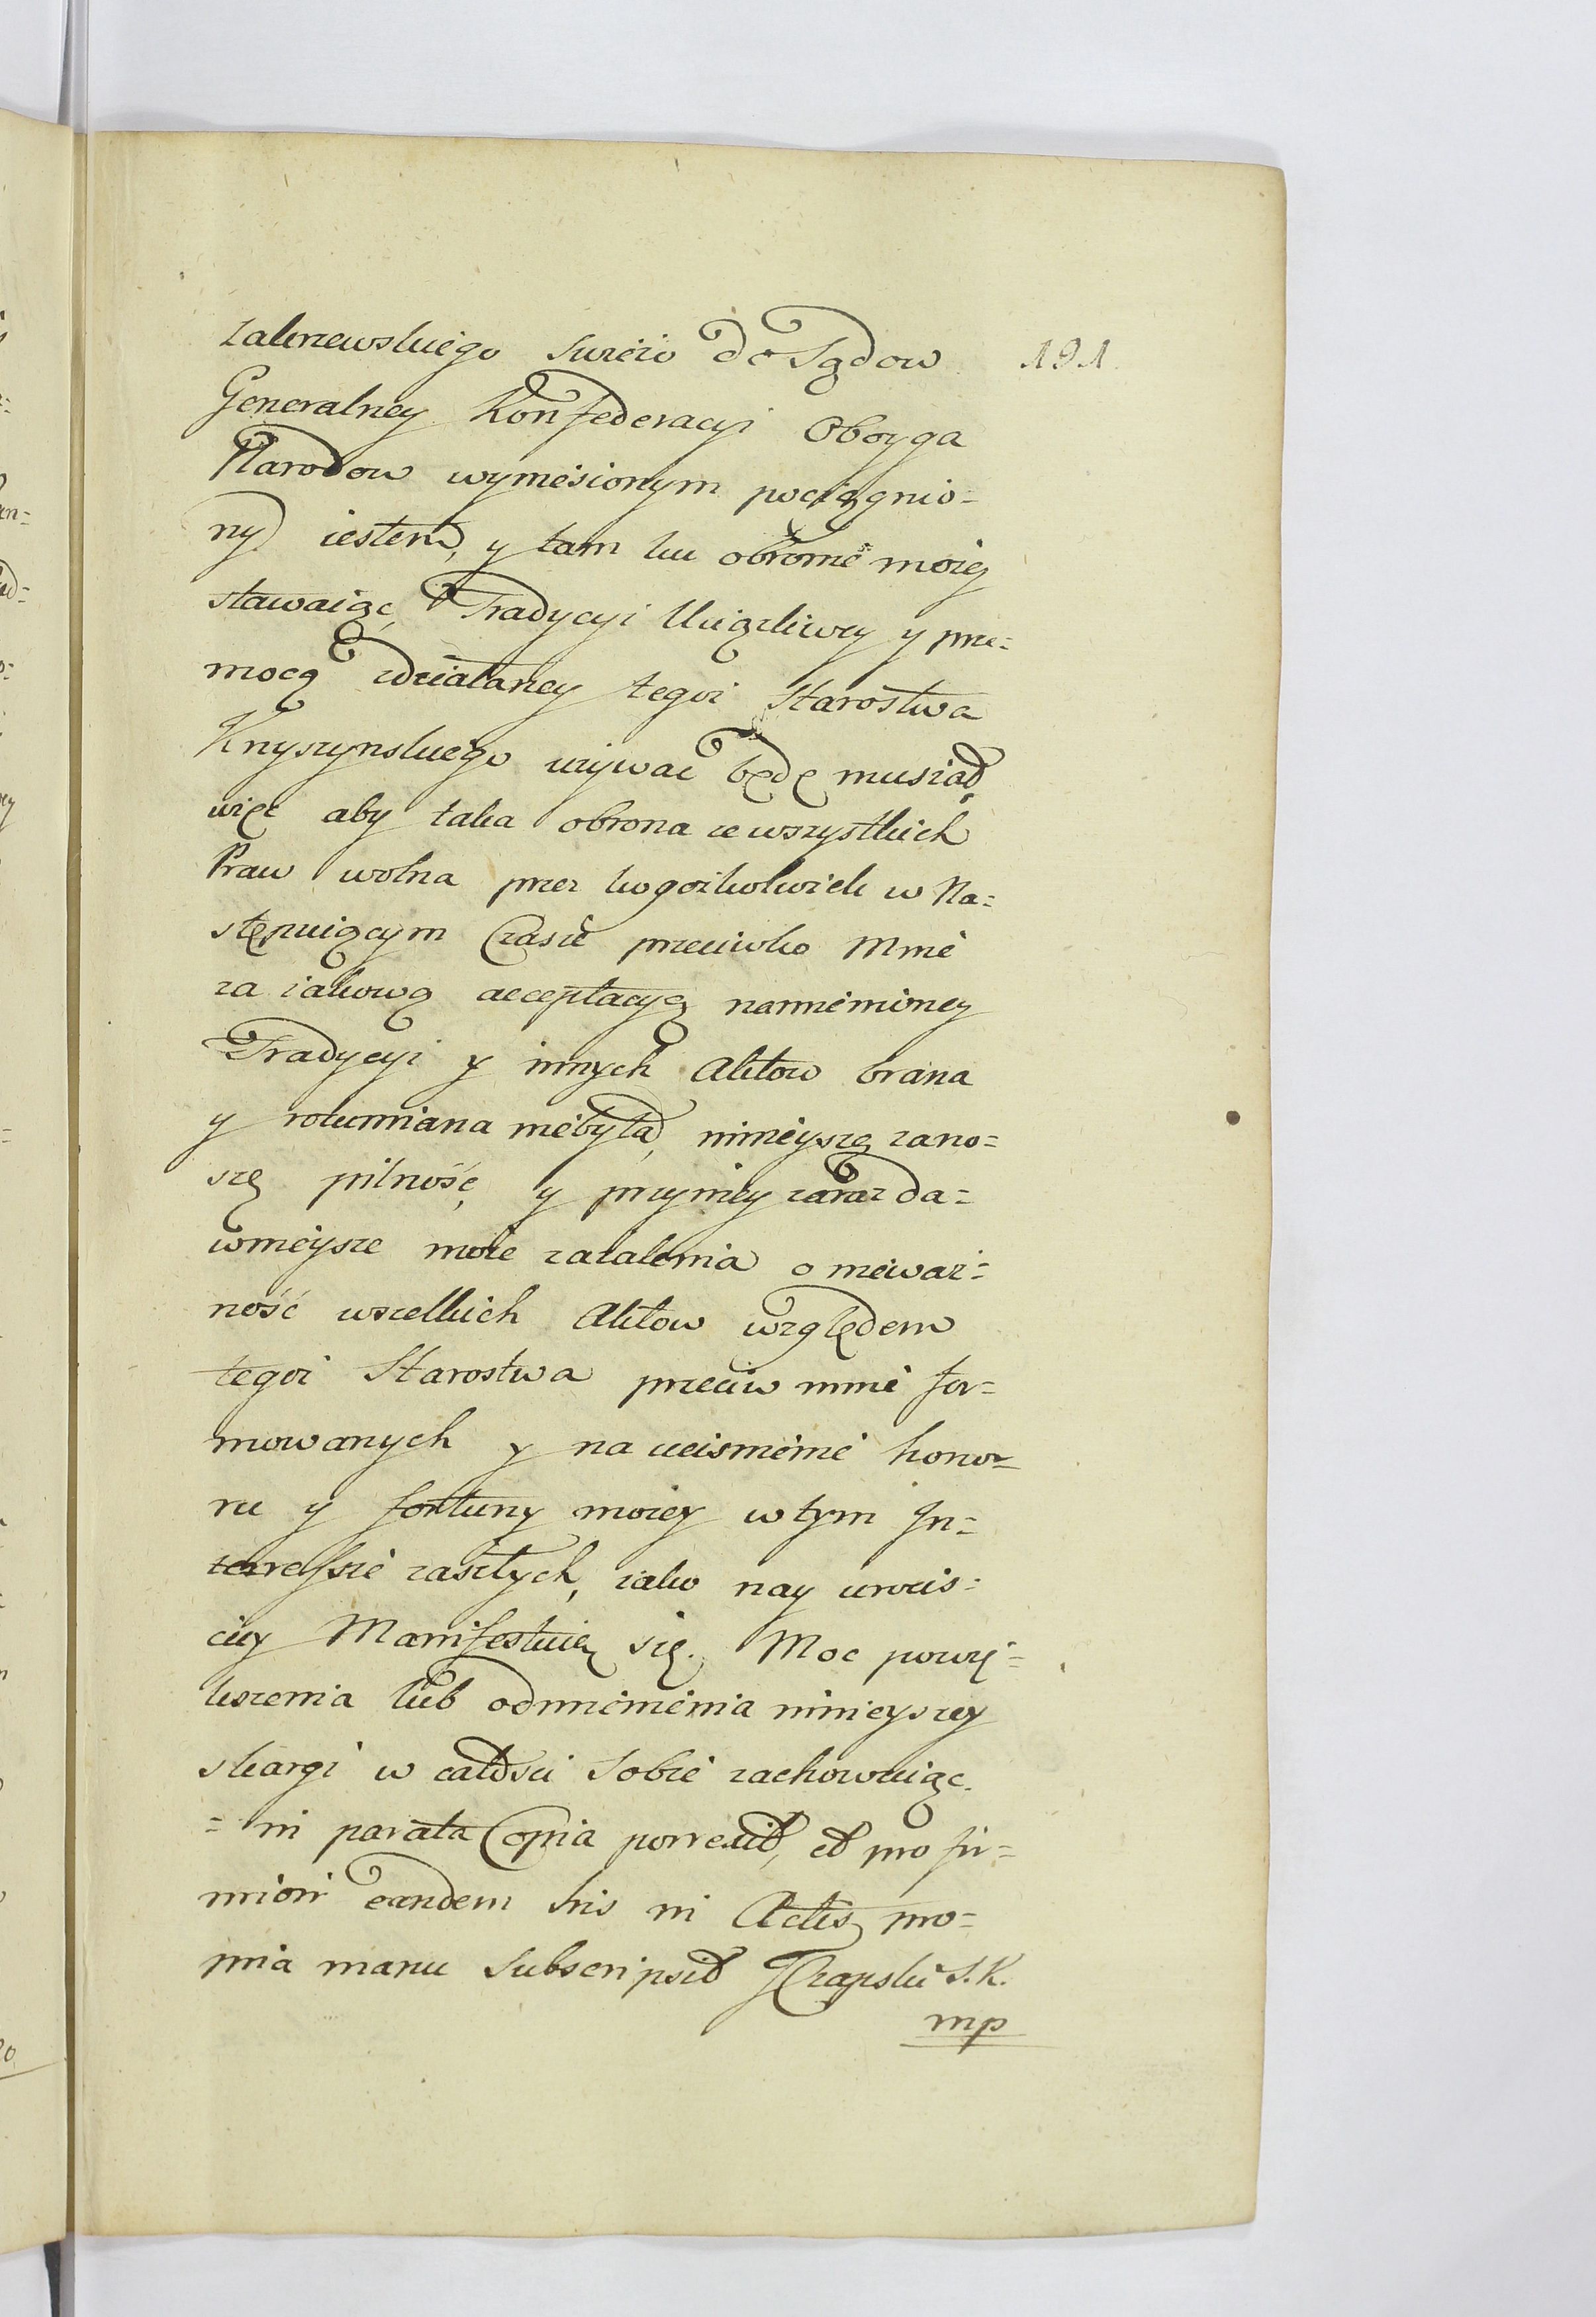 Zakrzewskiego swieżo do Sądow 191.
Generalney Konfederacyi Oboyga
Narodow wyniesionym pociągnio=
ny iestem, y tam ku obronie moiey
stawaiąc, Tradycyi Uciążliwey y prze=
mocą zdziałaney tegoż Starostwa
Knyszynskiego używać będę musiał,
więc aby taka obrona ze wszystkich
Praw wolna przez kogożkolwiek w Na=
stępuiącym Czasie przeciwko Mnie
za iakową acceptacyą namienioney
Tradycyi y innych Aktow brana
y rozumiana niebyła, ninieyszą zano=
szę pilność, y przyniey zaraz da=
wnieysze moie zażalenia o nieważ=
ność wszelkich Aktow względem
tegoż Starostwa przeciw mnie for=
mowanych y na uciśnienie hono=
ru y fortuny moiey w tym In=
teressie zaszłych, iako nay uroczis=
ciey Manifestuię się. Moc powię=
kszenia lub odmienienia ninieyszey
skargi w całości sobie zachowuiąc.
= in parata Copia porrexit, et pro fir=
miori eandem sris in Actis pro=
pria manu subscripsit J Czapski S. K.
mp